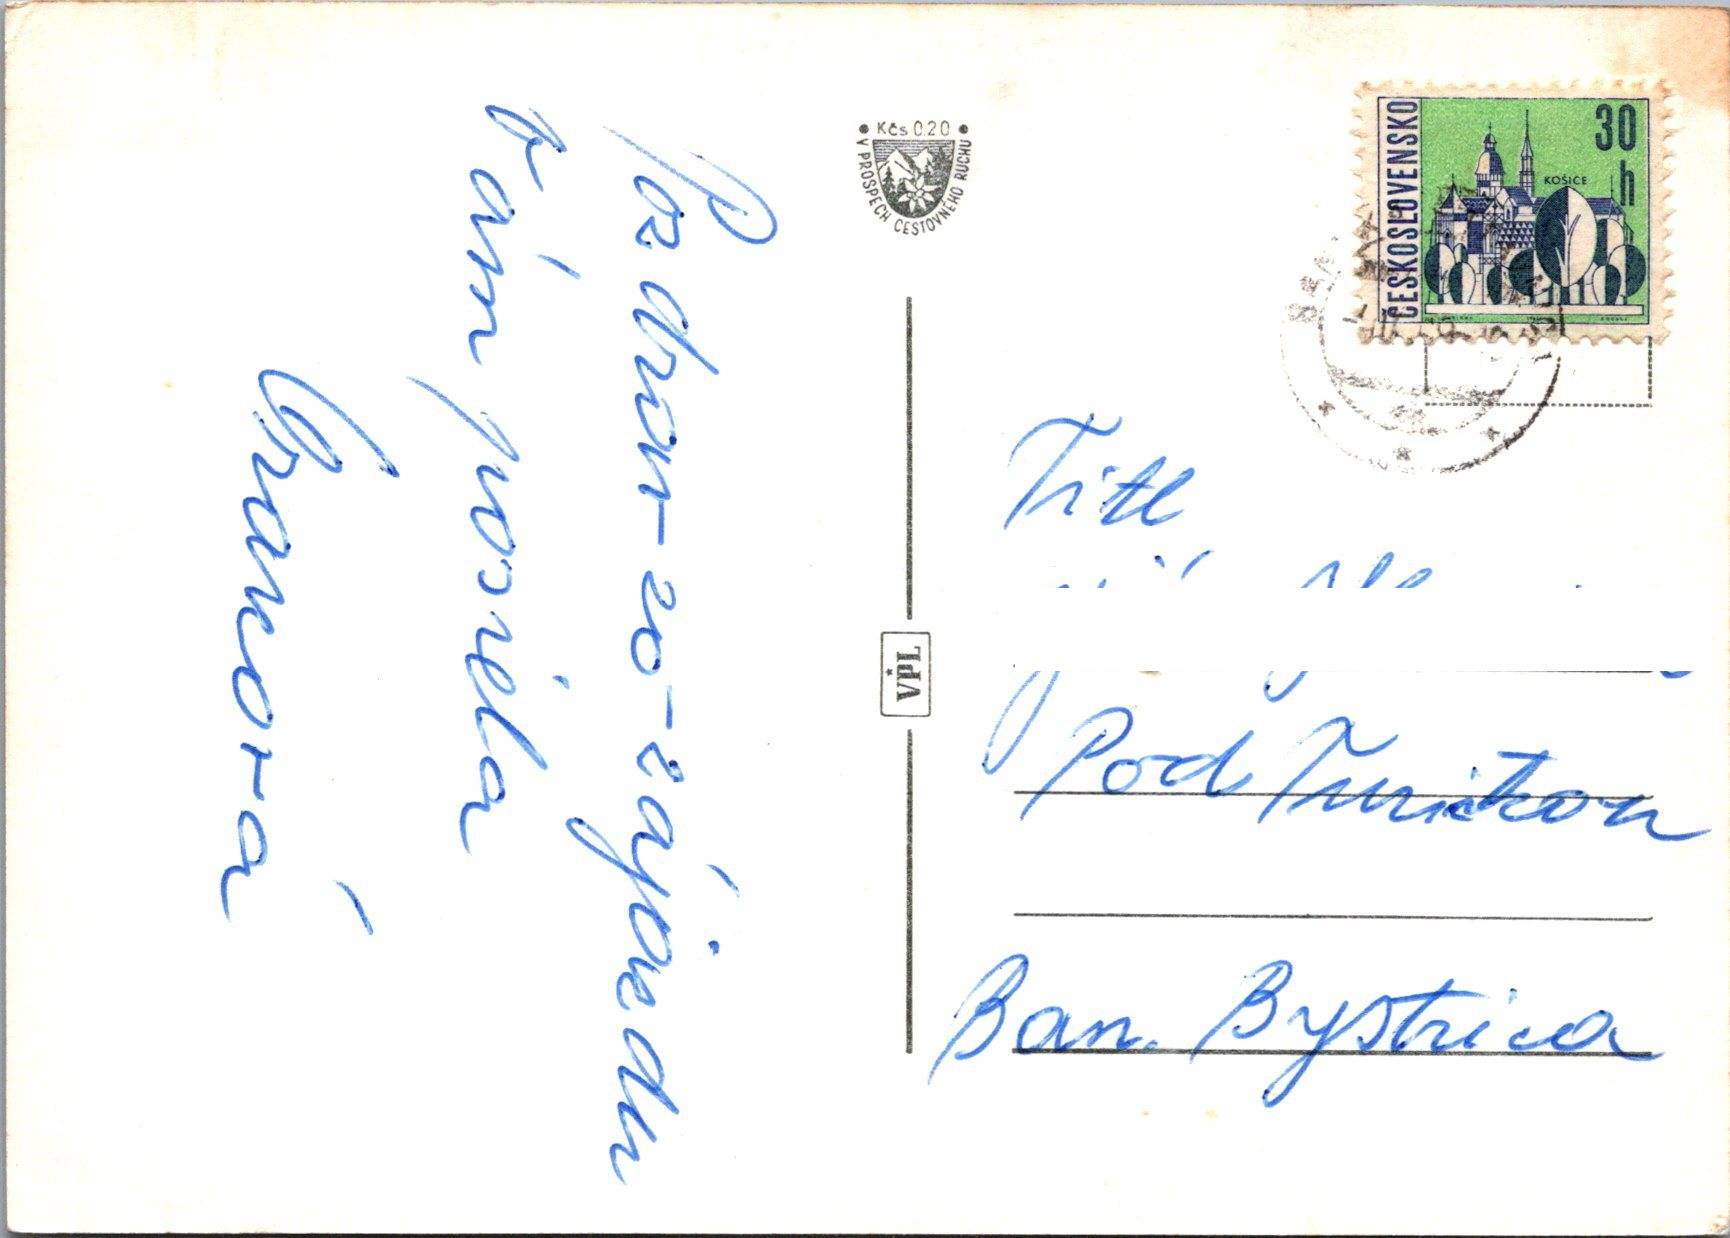 Pozdrav zo zájazdu
Vám posiela
Vránová
• Kčs 0.20 •
V PROSPECH CESTOVNÉHO RUCHU
VPL
ČESKOSLOVENSKO
30
h
KOŠICE
Titl
Pod
Ban. Bystrica